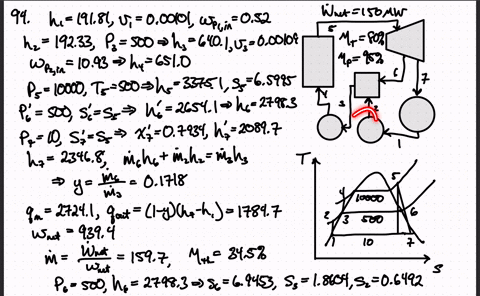 94. h₁=191.81, v₁=0.00101, w_P1,in=0.52
h₂=192.33, P₃=500⇒h₃=640.1, v₃=0.00109
w_P2,in=10.93⇒h₄=651.0
P₅=10000, T₅=500⇒h₅=3375.1, s₅=6.5995
P₆'=500, s₆'=s₅⇒h₆'=2654.1⇒h₆=2798.3
P₇=10, s₇'=s₅⇒x₇'=0.7934, h₇'=2089.7
h₇=2346.8, ṁ₆h₆+ṁ₂h₂=ṁ₃h₃
⇒y=ṁ₆/ṁ₃=0.1718
q_in=2724.1, q_out=(1-y)(h₇-h₁)=1784.7
w_net=939.4
ṁ=Ẇ_net/w_net=159.7, η_TH=34.5%
P₆=500, h₆=2798.3⇒s₆=6.9453, s₃=1.8604, s₂=0.6492
Ẇ_net=150MW
η_T=80%
η_P=95%
5
6
7
4
3
2
1
T
5
4
10000
2
3
500
6
1
10
7
s